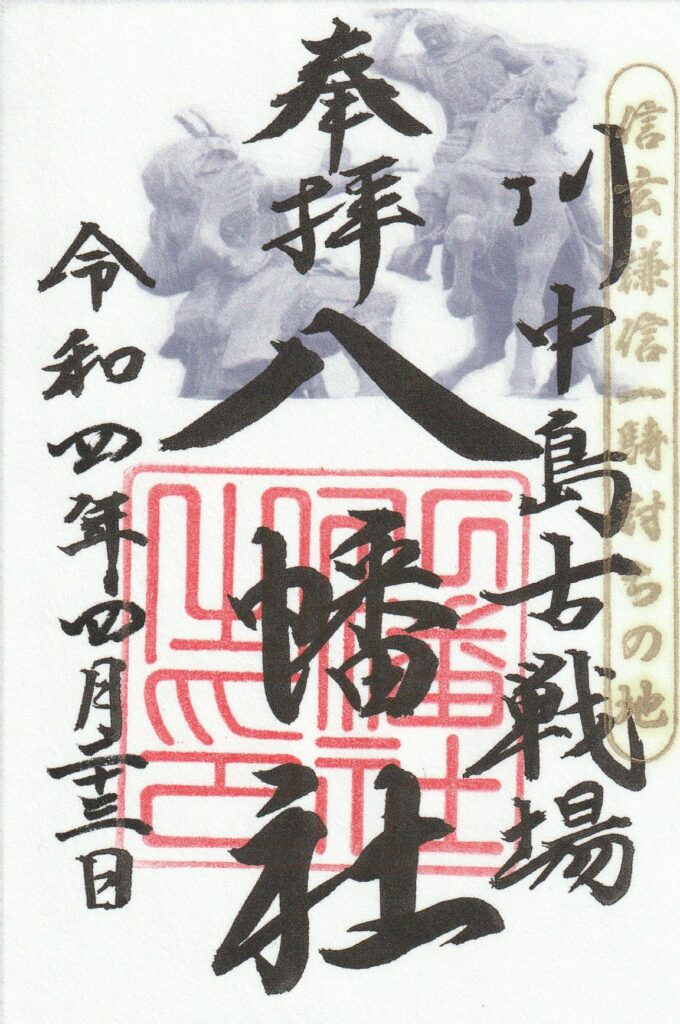 信玄・謙信一騎討ちの地
川中島古戦場
奉拝
八幡社
令和四年四月二十三日